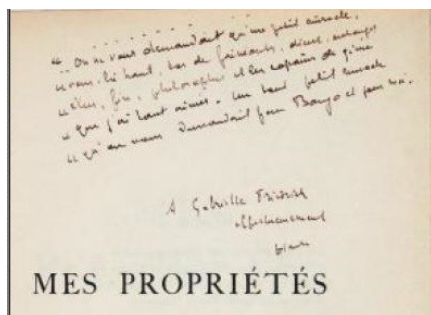 « On ne vous demandait qu'un petit miracle,
« vous, là haut, tas de fainéants, dieux, archanges
« élus, fées, philosophes et les copains de génie
« que j'ai tant aimés. Un tout petit miracle
« qu'on vous demandait pour Banjo et pour moi.
A Gabrielle
affectueusement
MES PROPRIÉTÉS